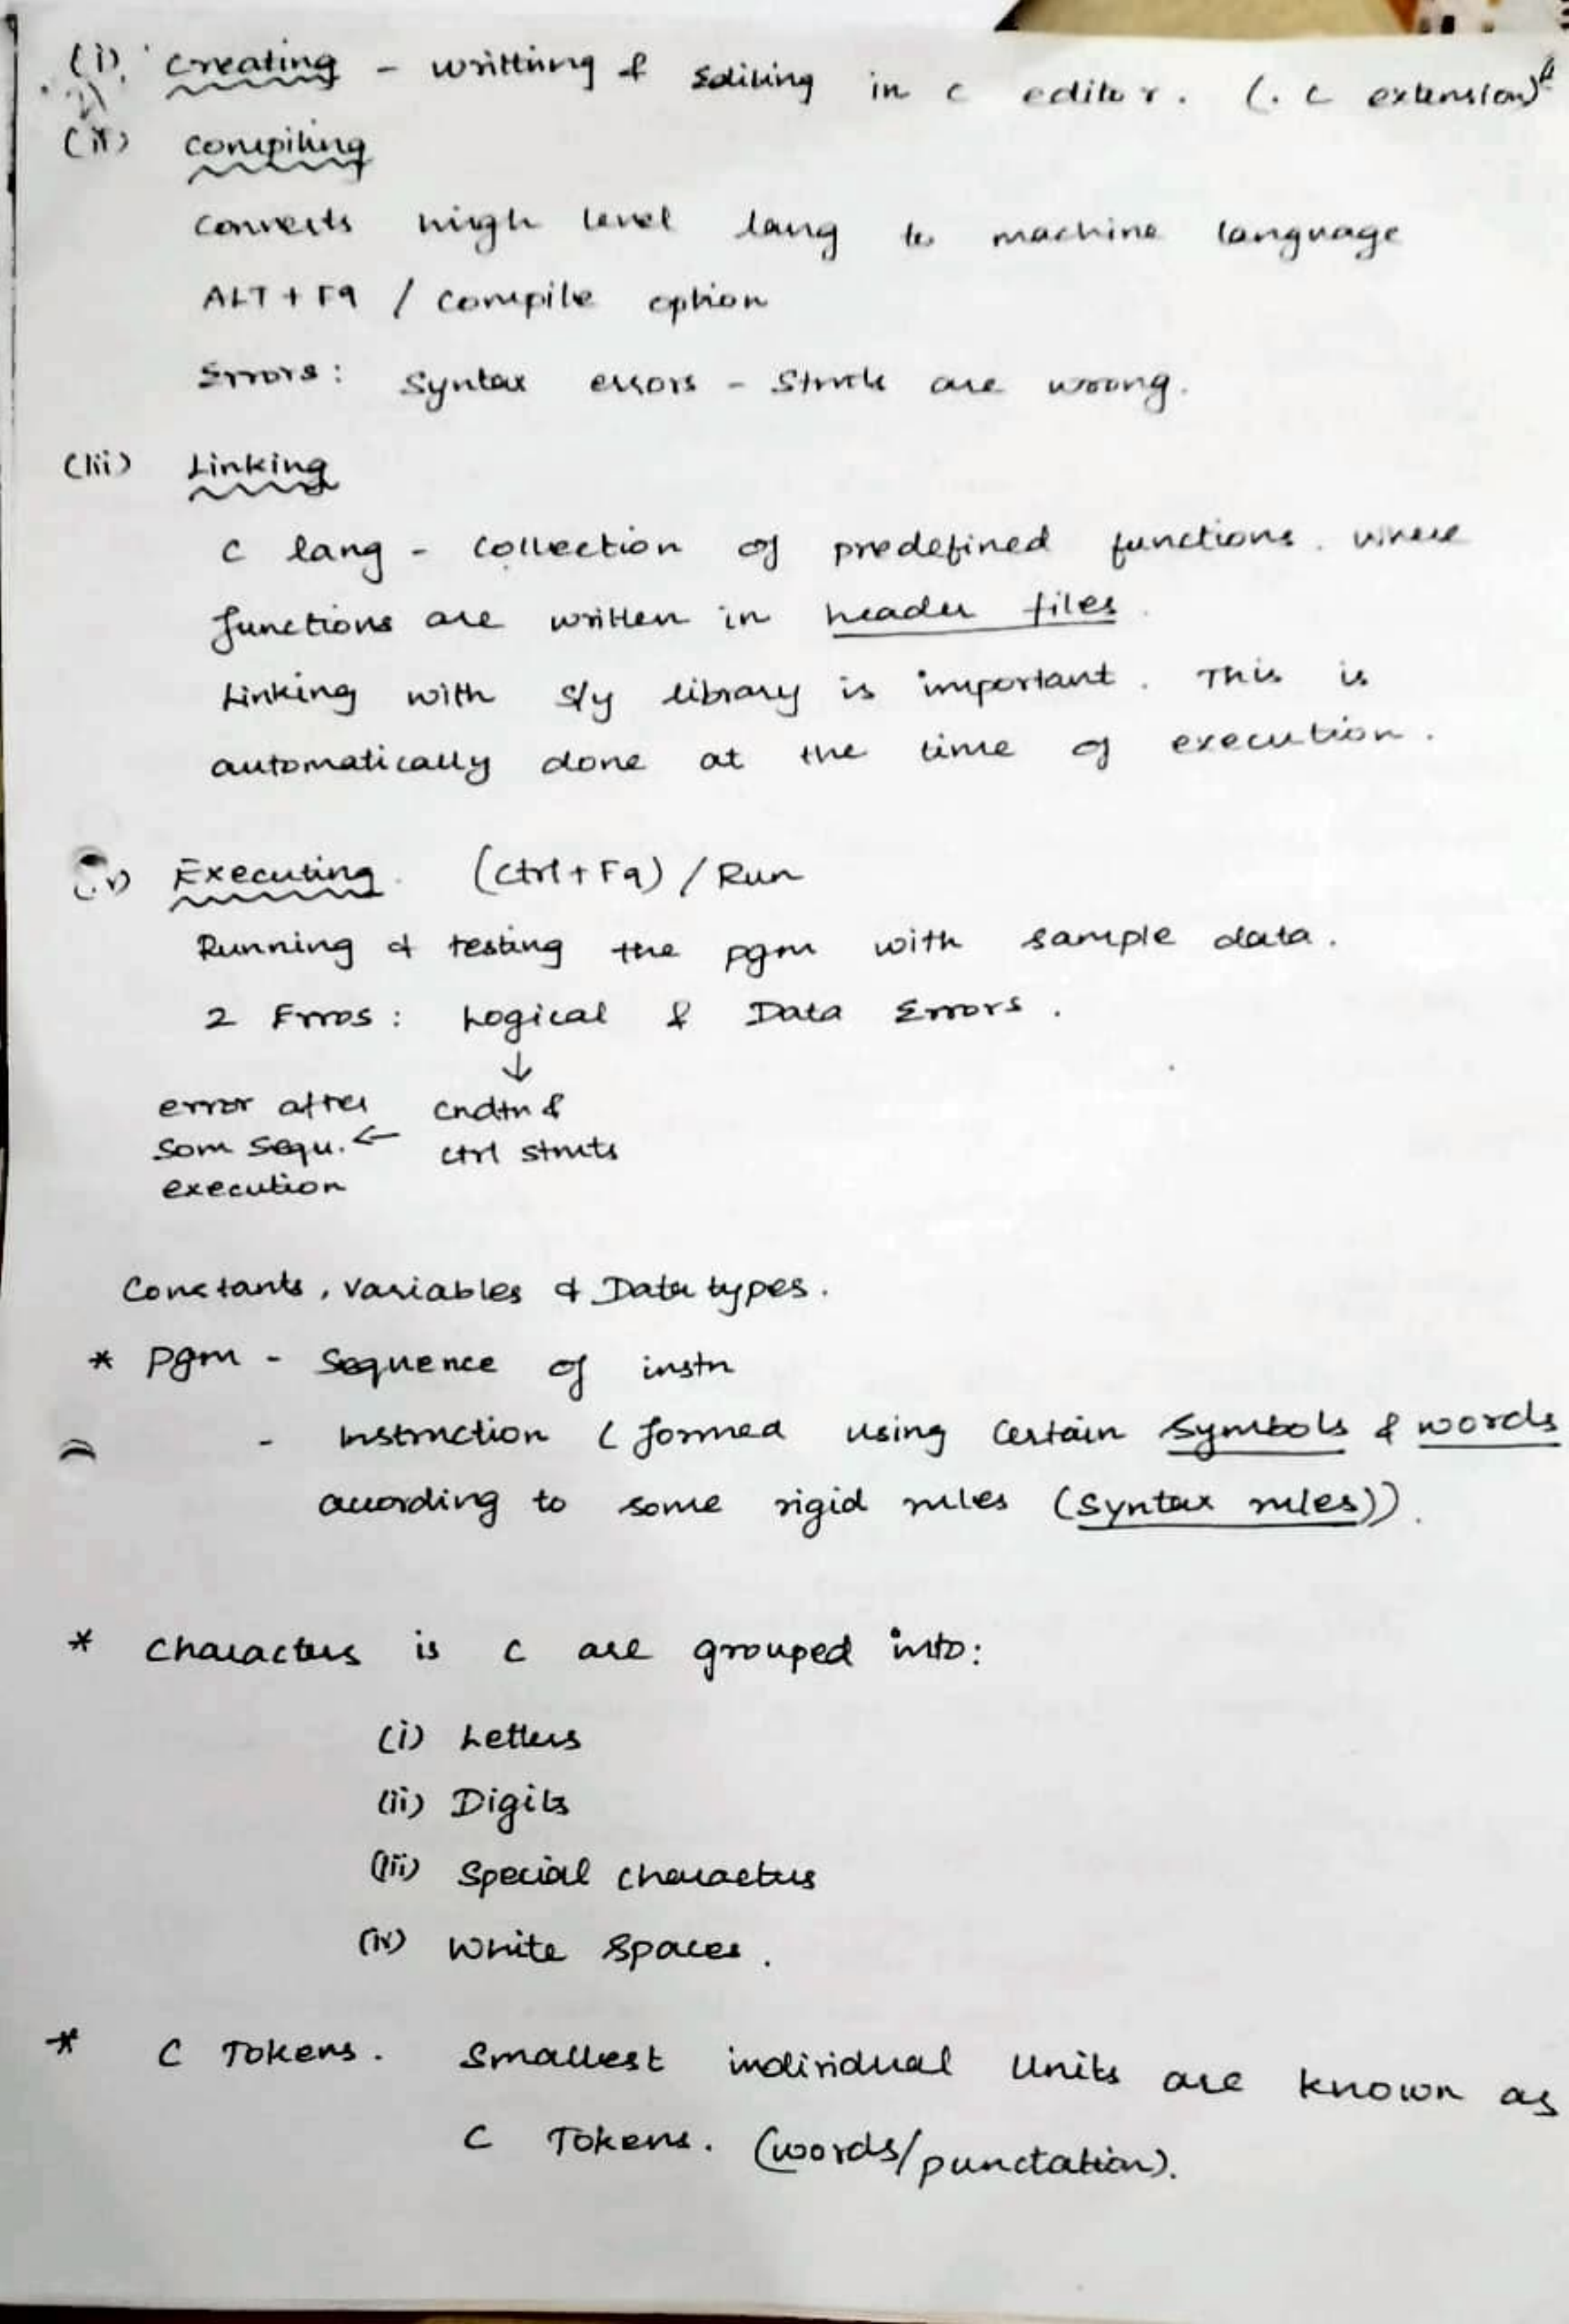 (i) Creating - writting & Editing in C editor. (.C extension)
(ii) Compiling
Converts high level lang to machine language
ALT + F9 / Compile option
Errors: Syntax errors - Stmts are wrong.
(iii) Linking
C lang - Collection of predefined functions. where
functions are written in header files.
Linking with s/y library is important. This is
automatically done at the time of execution.
(iv) Executing. (Ctrl + F9) / Run
Running & testing the pgm with sample data.
2 Erros: Logical & Data Errors.
↓
error after ← Cndtn &
som sequ. ctrl stmts
execution
Constants, Variables & Data types.
* Pgm - Sequence of instn
- Instruction (formed using certain symbols & words
according to some rigid rules (Syntax rules)).
* Characters is C are grouped into:
(i) Letters
(ii) Digits
(iii) Special characters
(iv) White Spaces.
* C Tokens. Smallest individual Units are known as
C Tokens. (words/punctation).